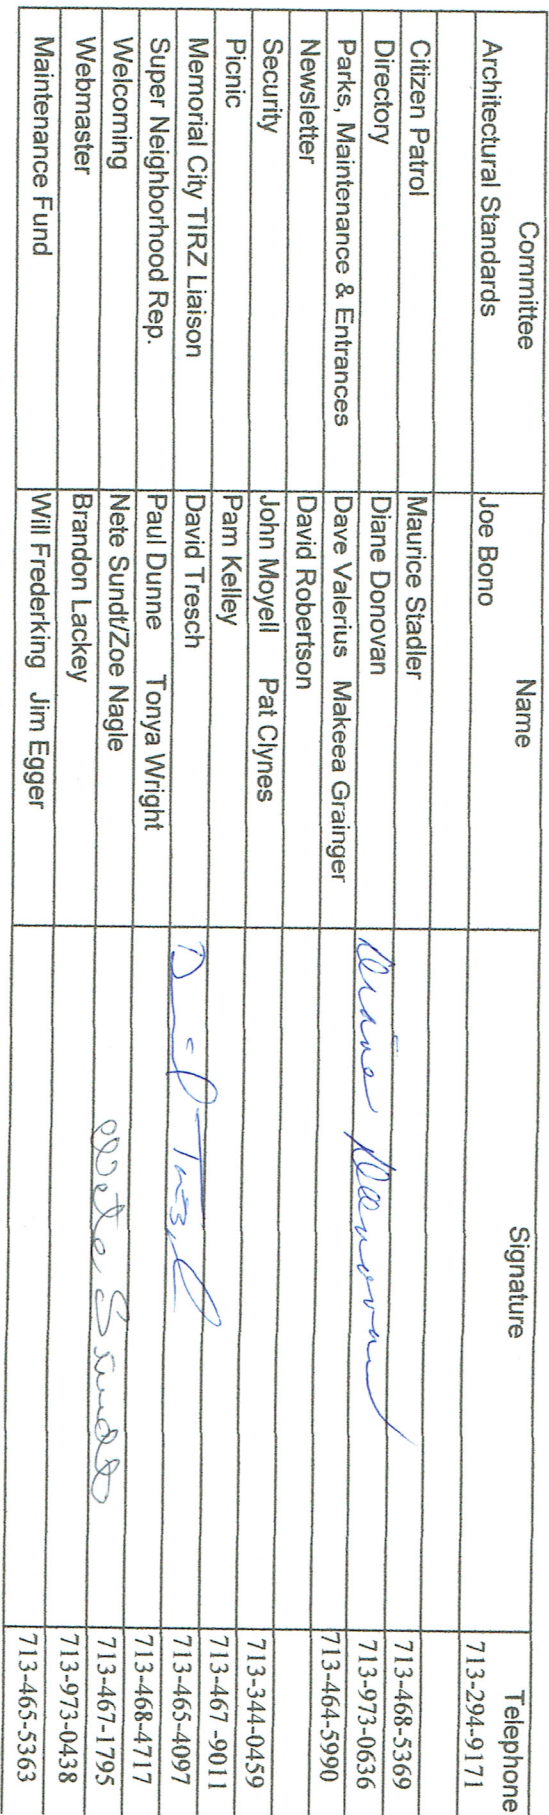 Committee Name Signature Telephone
Architectural Standards Joe Bono 713-294-9171
Citizen Patrol Maurice Stadler 713-468-5369
Directory Diane Donovan Diane Donovan 713-973-0636
Parks, Maintenance & Entrances Dave Valerius Makeea Grainger 713-464-5990
Newsletter David Robertson
Security John Moyell Pat Clynes 713-344-0459
Picnic Pam Kelley 713-467 -9011
Memorial City TIRZ Liaison David Tresch David Tresch 713-465-4097
Super Neighborhood Rep. Paul Dunne Tonya Wright 713-468-4717
Welcoming Nete Sundt/Zoe Nagle Nete Sundt 713-467-1795
Webmaster Brandon Lackey 713-973-0438
Maintenance Fund Will Frederking Jim Egger 713-465-5363